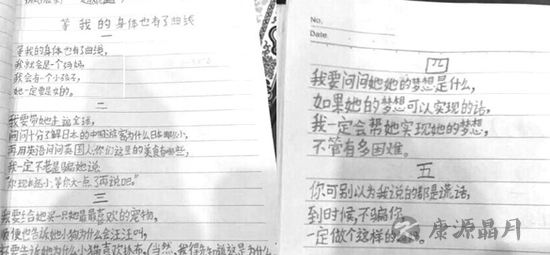 等我的身体也有了曲线
等我的身体也有了曲线,
我就会是一个妈妈,
我会有一个小孩子,
她一定要是女的。
二
我要带她走遍全球,
问问十分了解日本的中国游客为什么日本那么小,
再用英语问问英国人:你们这里的美食有哪些,
我一定不老是骗她说
"你现在还小,等你大一点了再说吧。"
三
我要给她买一只她最喜欢的宠物,
顺便也告诉她小狗为什么会汪汪叫,
我要告诉她为什么小猫喜欢
(当然,我得先知道这是为什么
No.
Date.
四
我要问问她她的梦想是什么,
如果她的梦想可以实现的话,
我一定会帮她实现她的梦想,
不管有多困难。
五
你可别以为我说的都是谎话,
到时候,不骗你,
一定做个这样的
康源晶月